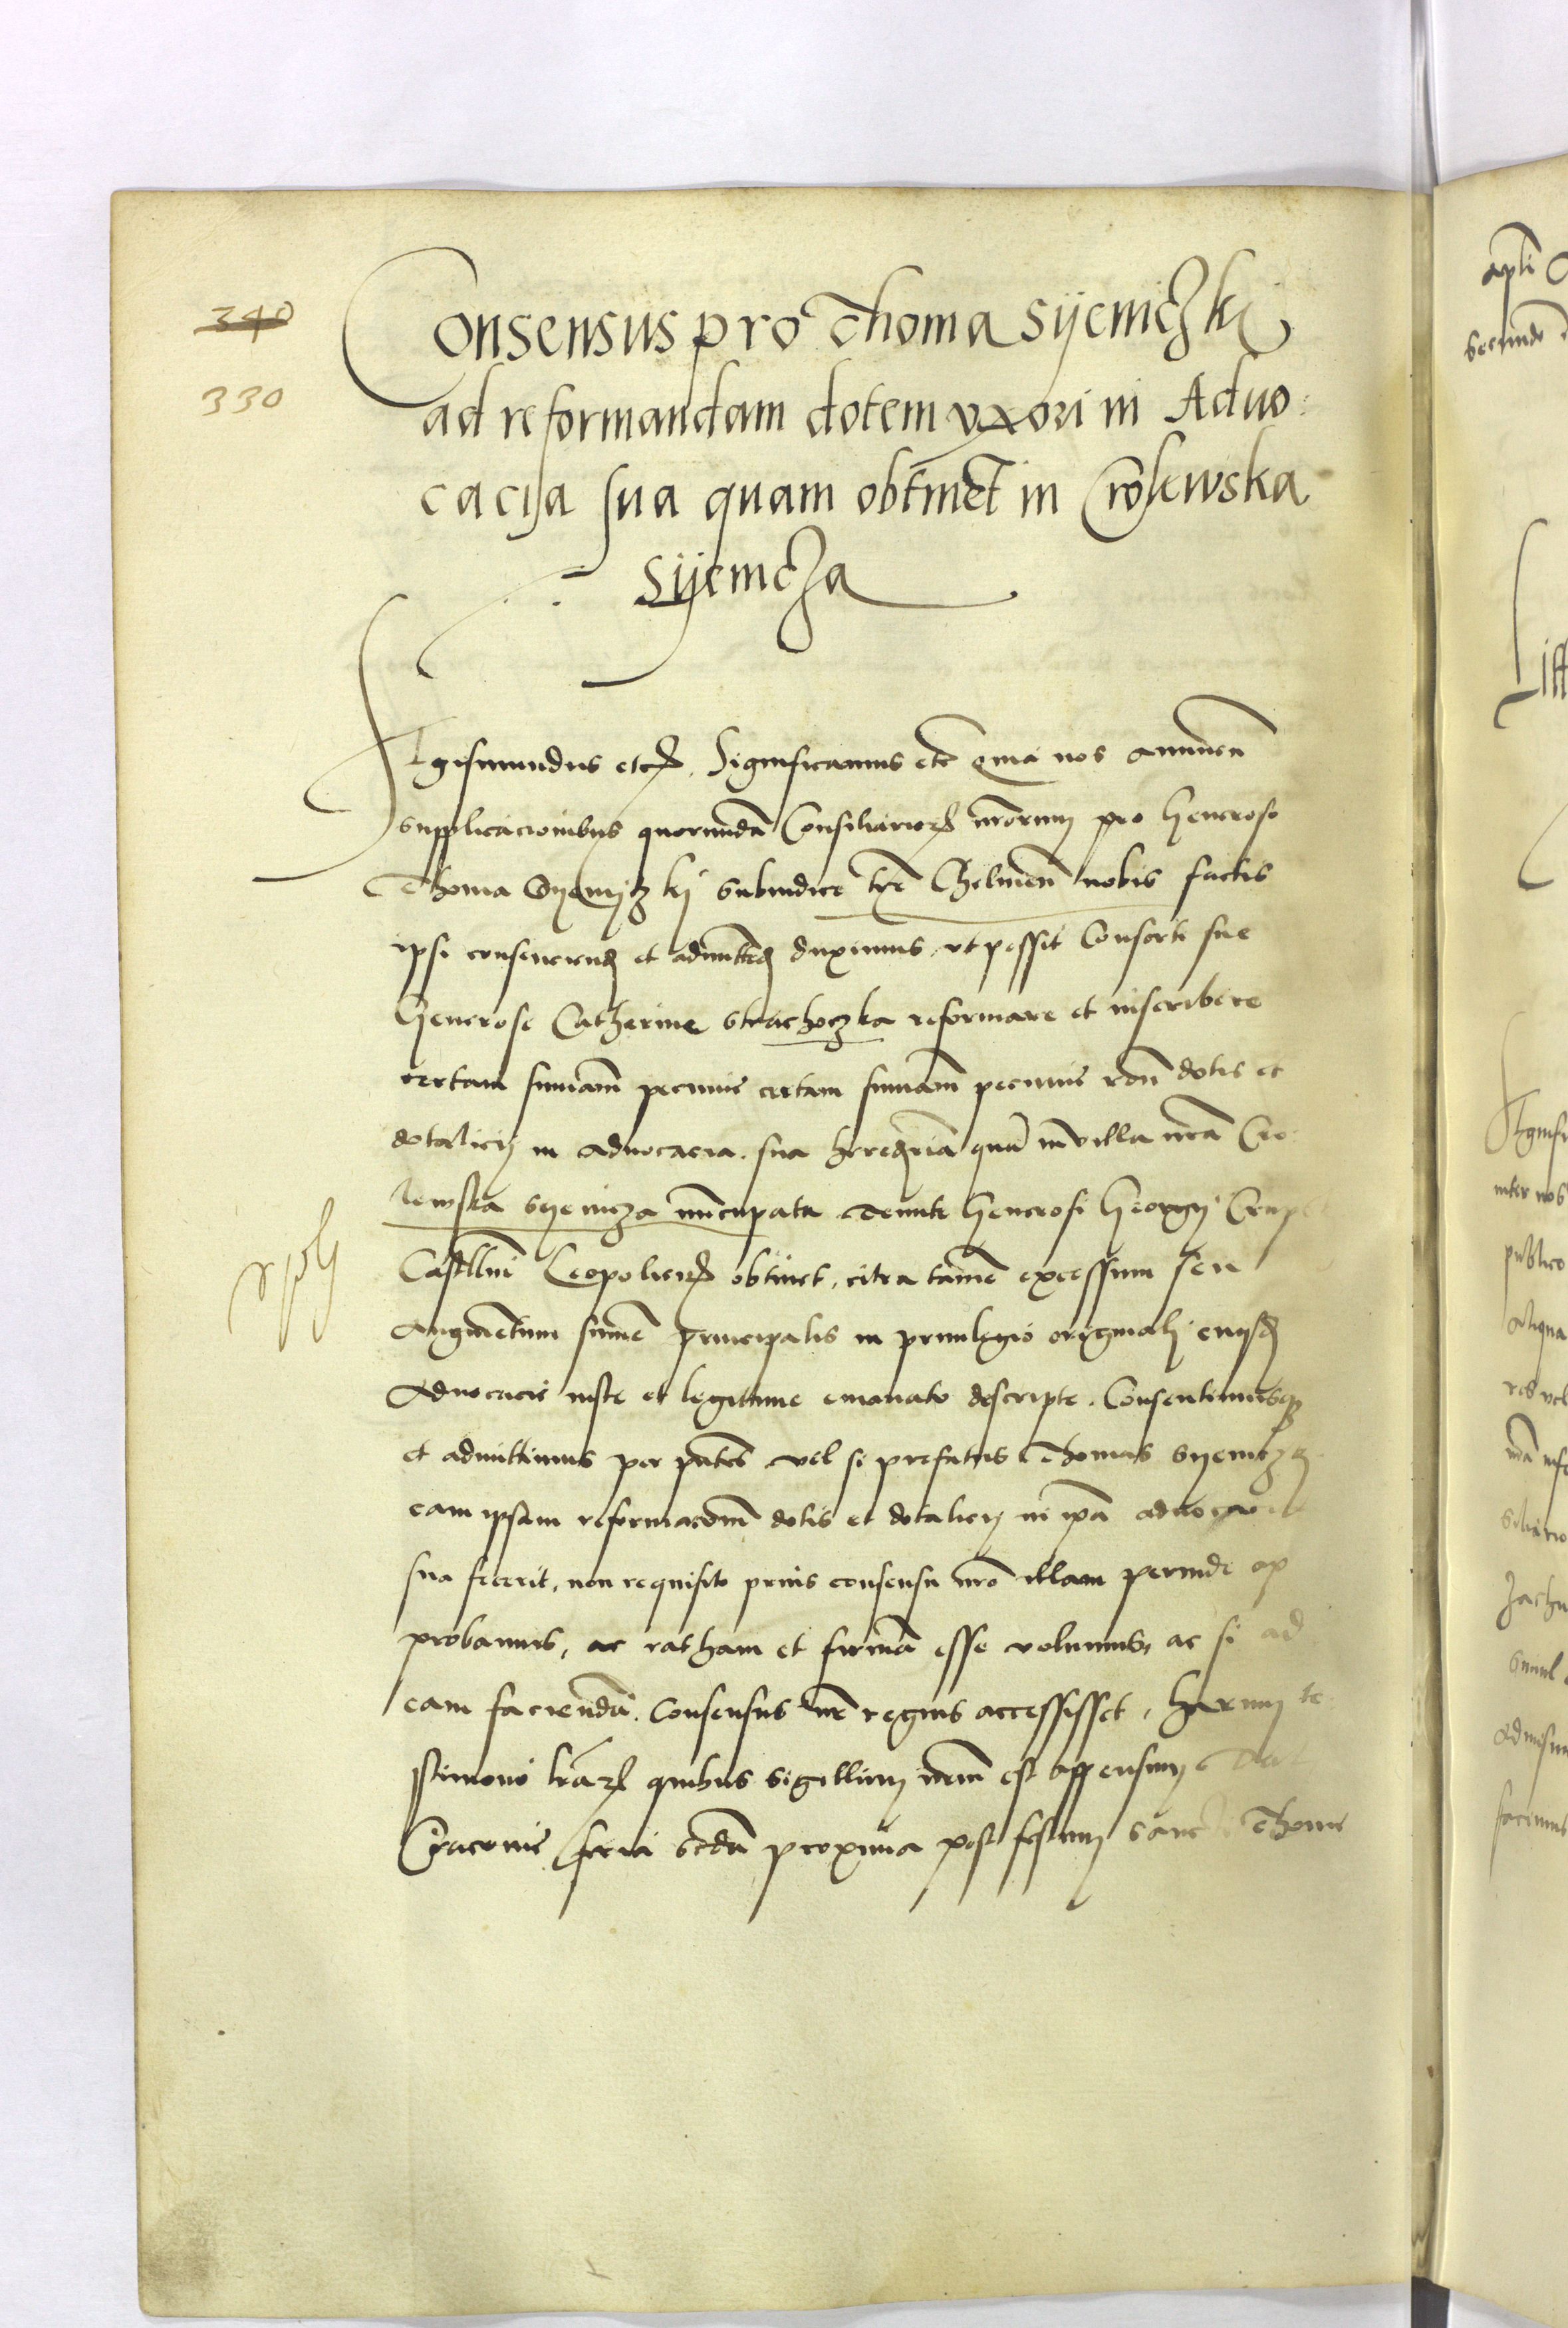 340
330
Consensus pro Thoma Syeniczki
ad reformandam dotem uxori in Aduo:
cacija sua quam obtinet in Crolewska
Syenicza
Sigismundus etc. Significamus etc quia nos annuen
supplicacionibus quorundã Consiliarior nrorum pro Generoso
Thoma Syenyczky Subiudice tre Chelmen nobis factis
ipsi consenciend et admitted duximus, vt possit Consorti sue
Generose Catherine Strachoczka reformare et inscribere
certam summam pecunie certam summam pecunie rõn dotis et
dotalicij in aduocacia sua quã in villa nrã Cro
lewska Syenicza nũcupata Tenute Generosi Georgij Crup
Castellni Leopolien obtinet, citra tamẽ excessum seu
augmẽtum summe principalis in priuilegio originali eiusd
Aduocacie iuste et legittime emanato descripte. Consentimusq
et admittimus per pñtes vel si prefatus Thomas Syeniczky
eam ipsam reformacõnẽ dotis et dotalicij in ipã aduocacia
sua fecerit, non requisito prius consensu nrõ illam perinde ap
probamus, ac ratham et firmã esse volumus, ac si ad
eam faciendã Consensus nr̃ regius accessisset, harum te
stimonio lr̃ar quibus sigillum nrm̃ est appensum Dat
Cracouie feria scdã proxima post festum sancti Thome
apli
secundo
inter nos
publico
aliqua
res vel
simul
facimus